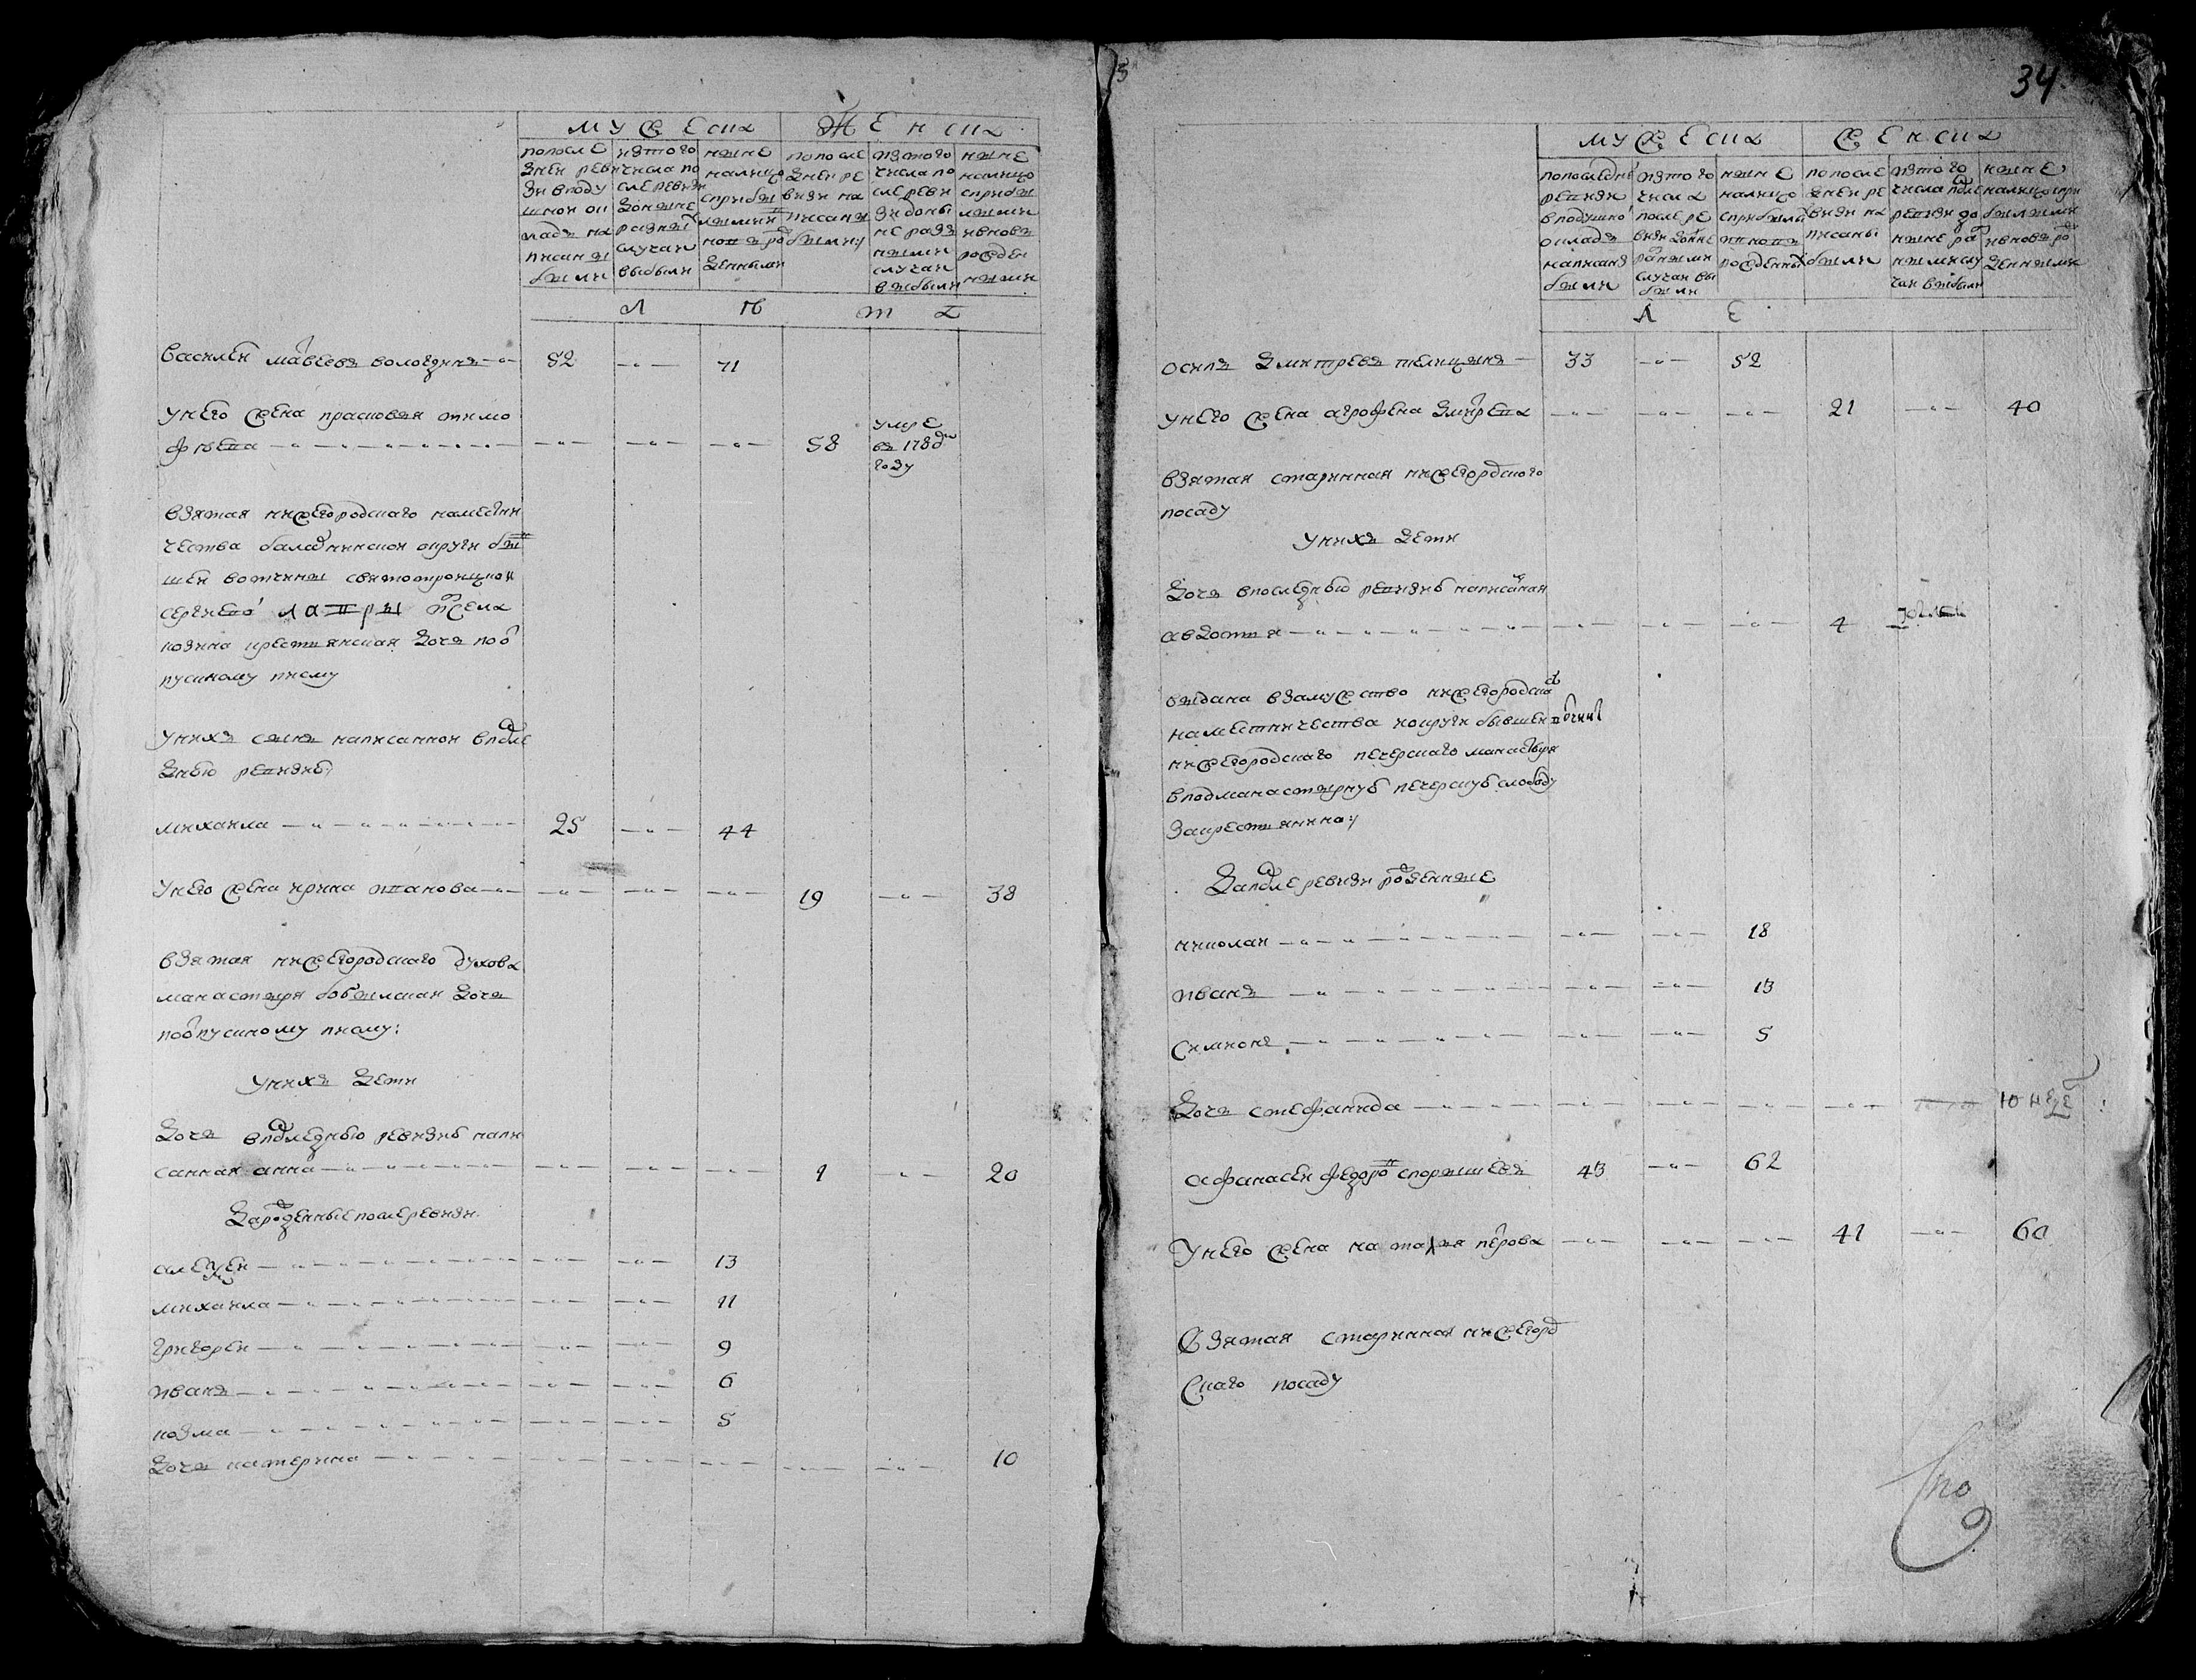 мужеска женска
попосле дней реви зи вподу шной ок ладъ на писаны были
изтого числа по сле ревизи доныне разными случаи выбыли
ныне налицо сприбы лыми и новорож денными
попосле дней ре визи на писаны были
изтого числа по сле реви зи доны не разз ными случаи выбыли
ныне налицо сприбы лыми ивновь рожден ными
л ѣ т а
василей матвеевъ вологдинъ 52 71
унего жена прасковья тимо
фѣева 58 умре въ 178 году
взятая нижегородского наместни
чества балахнинской округи быв
шей вотчины святотроицкой
сергиево лавры ижсела
козина крестьянская дочь поот
пускному писму
унихъ сынъ написанной впосле
днею ревизию
михаила 25 44
унего жена ирина иванова 19 38
взятая нижегородского духова
манастыря бобыльская дочь
поотпускному писму:
унихъ дети
дочь впоследнюю ревизию напи
санная анна 1 20
дарожденные после ревизи
алексей 13
михаила 11
григорей 9
иванъ 6
козма 5
дочь катерина 10
34
мужеска женска
попоследней ревизи вподушной окладъ написаны были
изтого числа после ре визи доныне разными случаи вы были
ныне налицо сприбылыми ивновь рожденными
попосле дней ре визи на писаны были
изтого числа после ревизи доныне разными слу чаи выбыли
ныне налицо спри былыми ивновь рожденными
л е
осипъ дмитревъ телицынъ 33 52
унего жена агрофена дмитрева 21 40
взятая старинная нижегородского
посаду
унихъ дети
дочь впоследнюю ревизию написаная
авдотья 4
выдана взамужство нижегородска
наместничества
нижегородского печерского манастыря
вподманастырную печерскую слободу
закрестьянина
дапосле ревизи рожденные
николай 18
иванъ 13
симионъ 5
дочь стефанида 10 неде
афанасей федоров спорышевъ 43 62
унего жена наталья петрова 41 60
Взятая старинная нижегород
скаго посаду